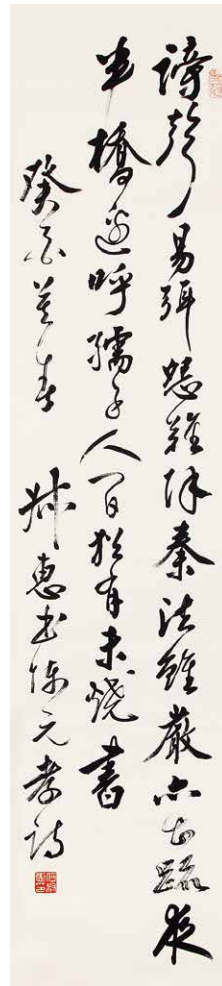 謗聲易弭怨難除秦法雖嚴亦甚疏夜
半橋邊呼孺子人間猶有未燒書
癸酉莫春 惠書陳元孝詩